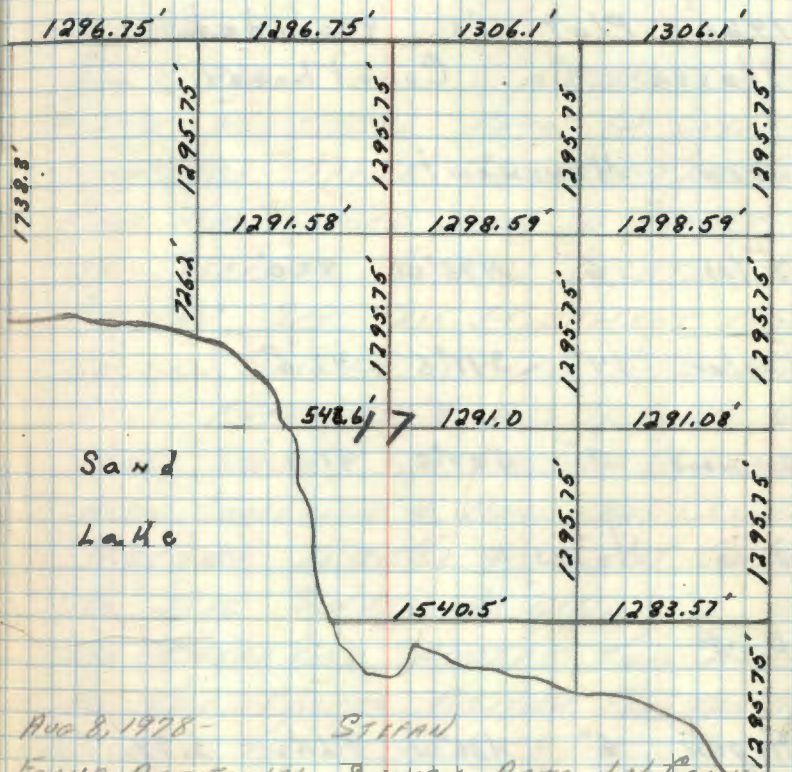 1296.75' 1296.75' 1306.1' 1306.1'
1738.3' 1295.75' 1295.75' 1295.75' 1295.75'
1291.58' 1298.59' 1298.59'
726.2' 1295.75' 1295.75' 1295.75'
548.6' 17 1291.0 1291.08'
Sand
Lake
1295.75' 1295.75'
1540.5' 1283.57'
1295.75'
Aug 8, 1978 - STEFAN